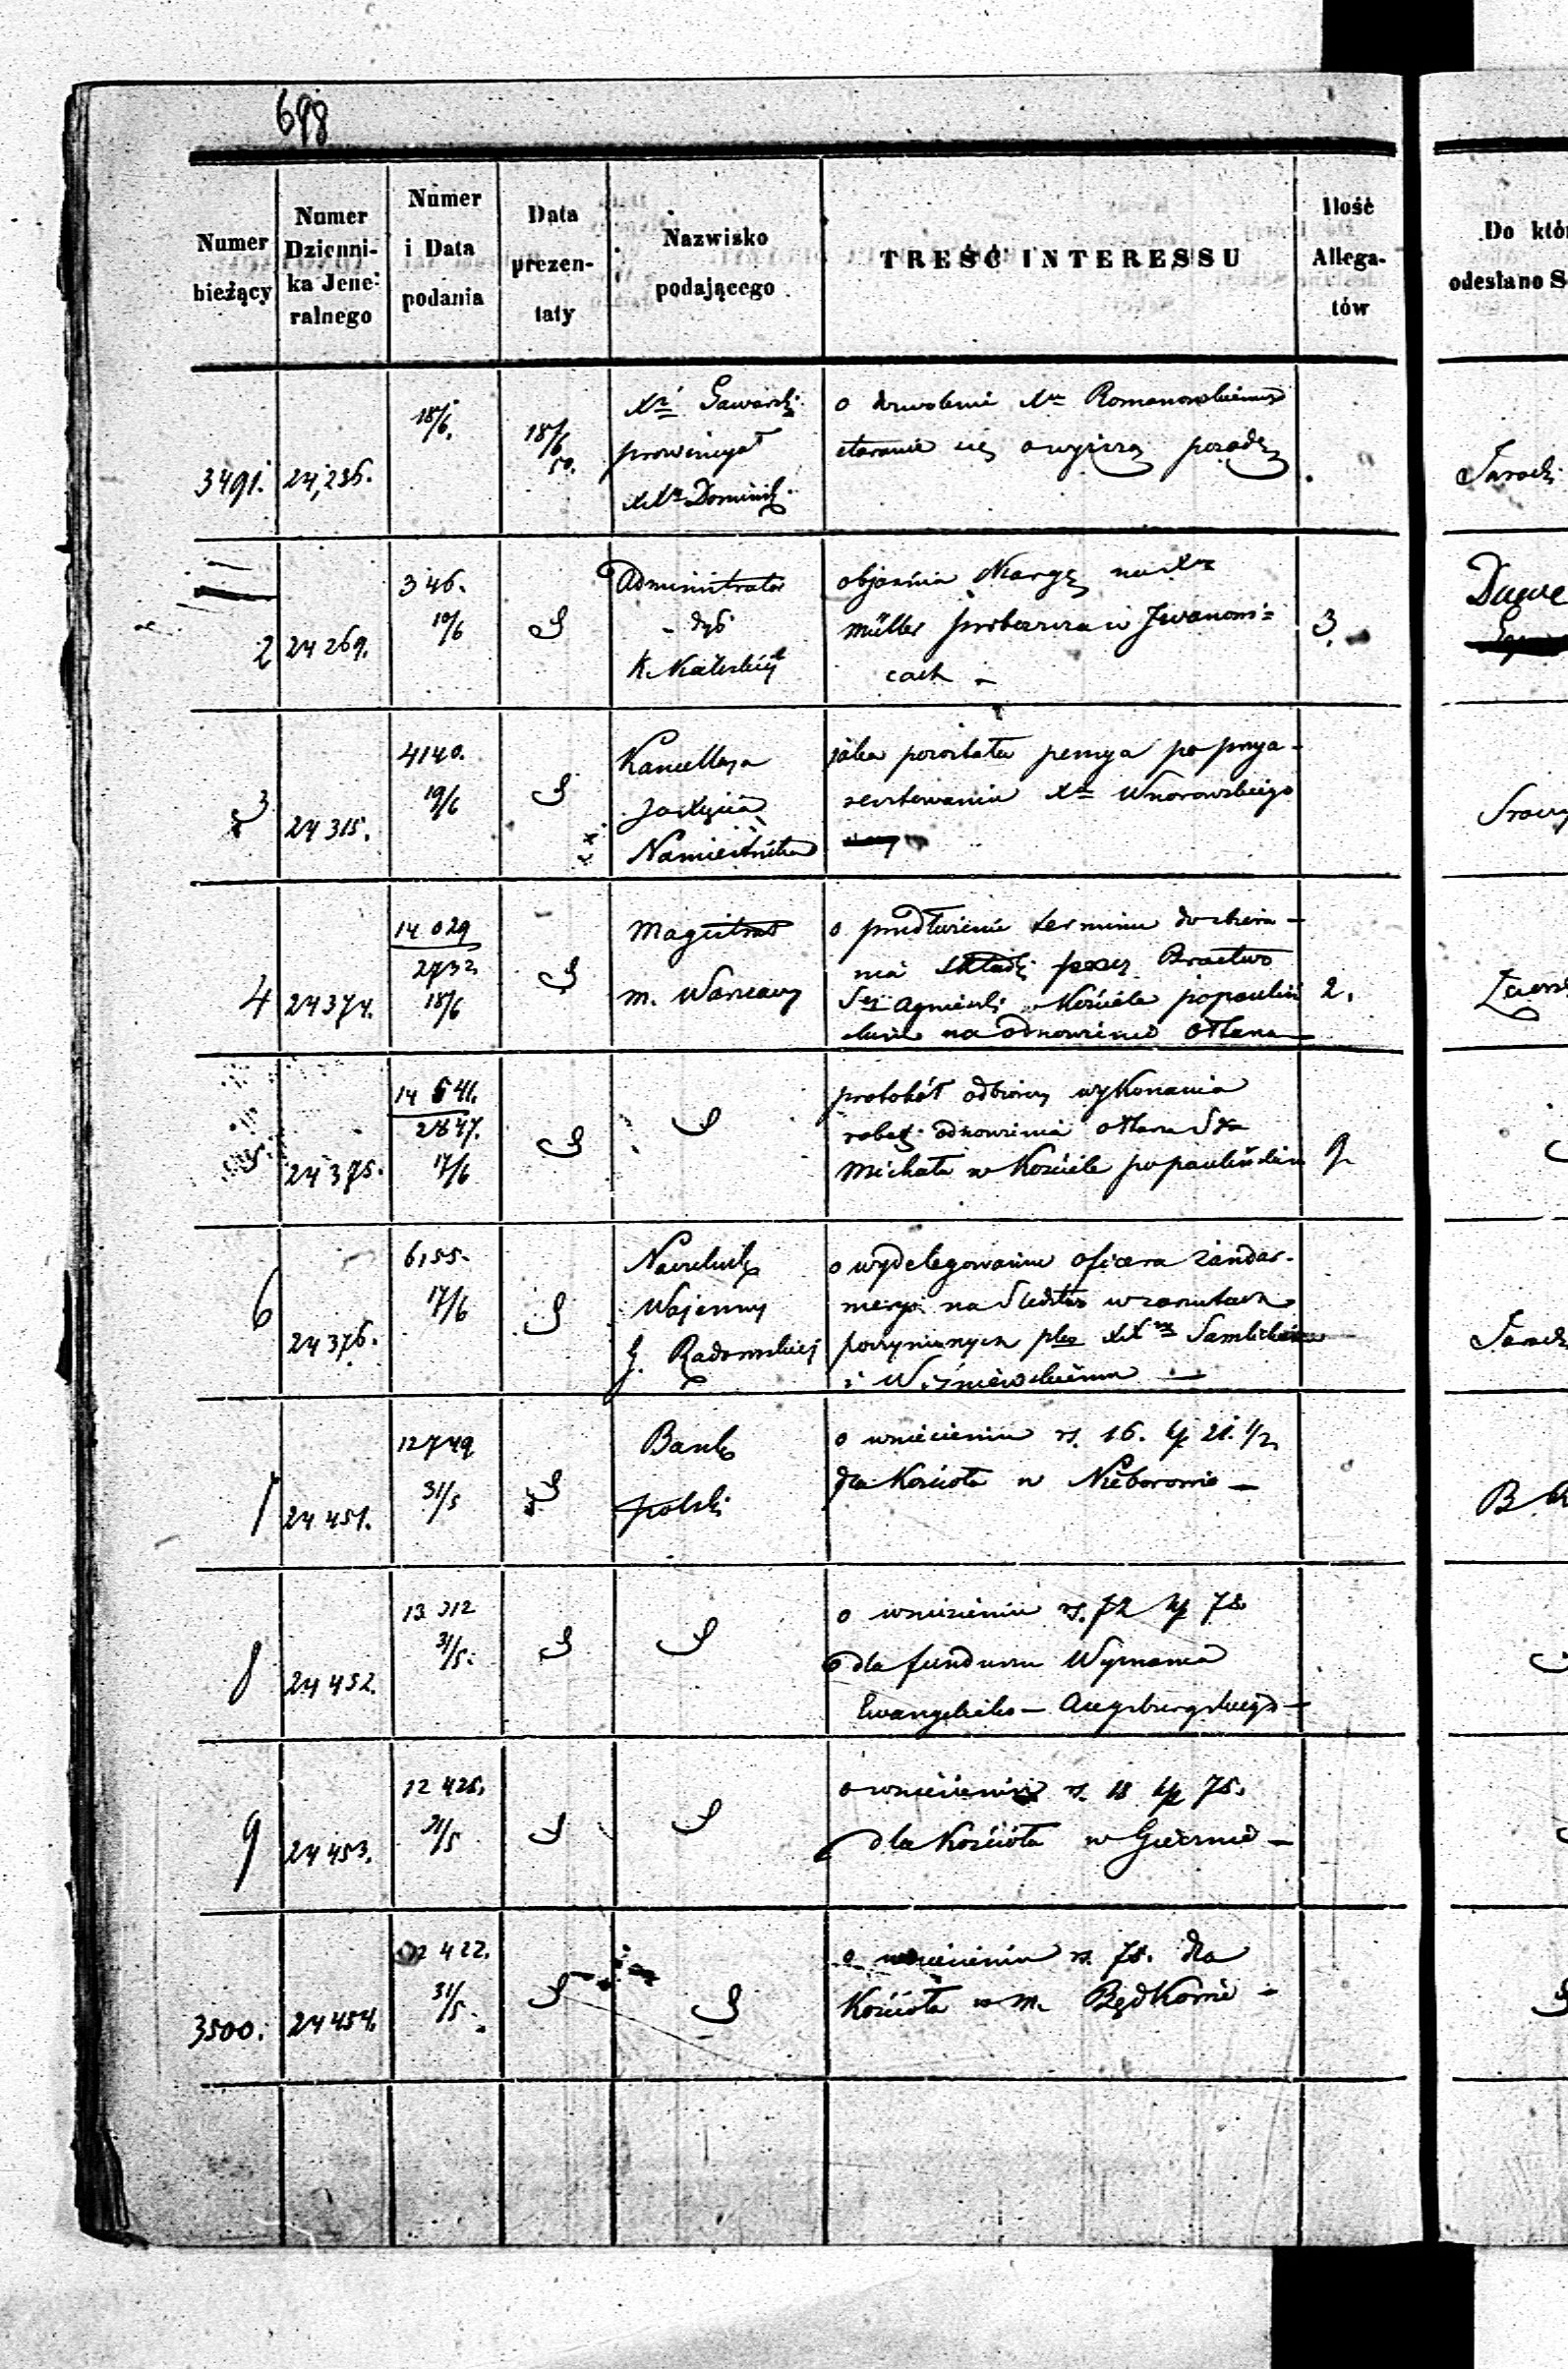 698
Numer bieżący
Numer Dzienni-ka Jene-ralnego
Numer i Data podania
Data prezen-taty
Nazwisko podającego
TREŚĆ INTERESSU
Ilość Allega-tów
Do któ
odesłano S
3491. 24,236. 18/6. 18/6 50.
Xdz
prowincyał
Dominik.
o dozwolenie Xu Romanowskiemu
staranie się o wyższą posadę
2 24 269. 346. 19/6
Administrator
dyó
K. Kaliskiej
objaśnia skargę na Xa
Müller proboszcza w Iwanowi=
cach –
3.
3 24 315. 4140. 19/6
Kancellarya
Namiestnika
jaka pozostała pensya po przya-
resztowaniu Xa Wnorowskiego
4 24 374. 14 029 2732 18/6
Magistrat
m. Warszawy
o przedłużenie terminu do zbiera-
nia składki przez Bractwo
Sej Agnieszki w Kościele popauliń
skim na odnowienie ołtarza
2.
24 375. 14 541. 2847. 17/6
protokół odbiorczy wykonania
robót odnowienia ołtarza Sgo
Michała w Kościele popaulińskim
9
6 24 376. 6155. 17/6
Naczelnik
Wojenny
G. Radomskiej
o wydelegowanie oficera żandar-
meryi na śledztwo w zarzutach
poczynionych plko XX
i Wiśniewskiemu –
7 24 451. 12749 31/5
Bank
polski
o wniesieniu rs. 16. kp 21. 1/2
dla Kościoła w Nieborowie –
8 24 452. 13 312 31/5.
o wniesieniu rs. 72 kp 75
dla funduszu Wyznania
Ewangelicko – Augsburgskiego –
9 24 453. 12 425. 31/5
o wniesieniu rs. 18 kp 75.
dla Kościoła w –
3500. 24 454. 12 422. 31/5.
o wniesieniu rs. 75. dla
Kościoła w m. Będkowie –